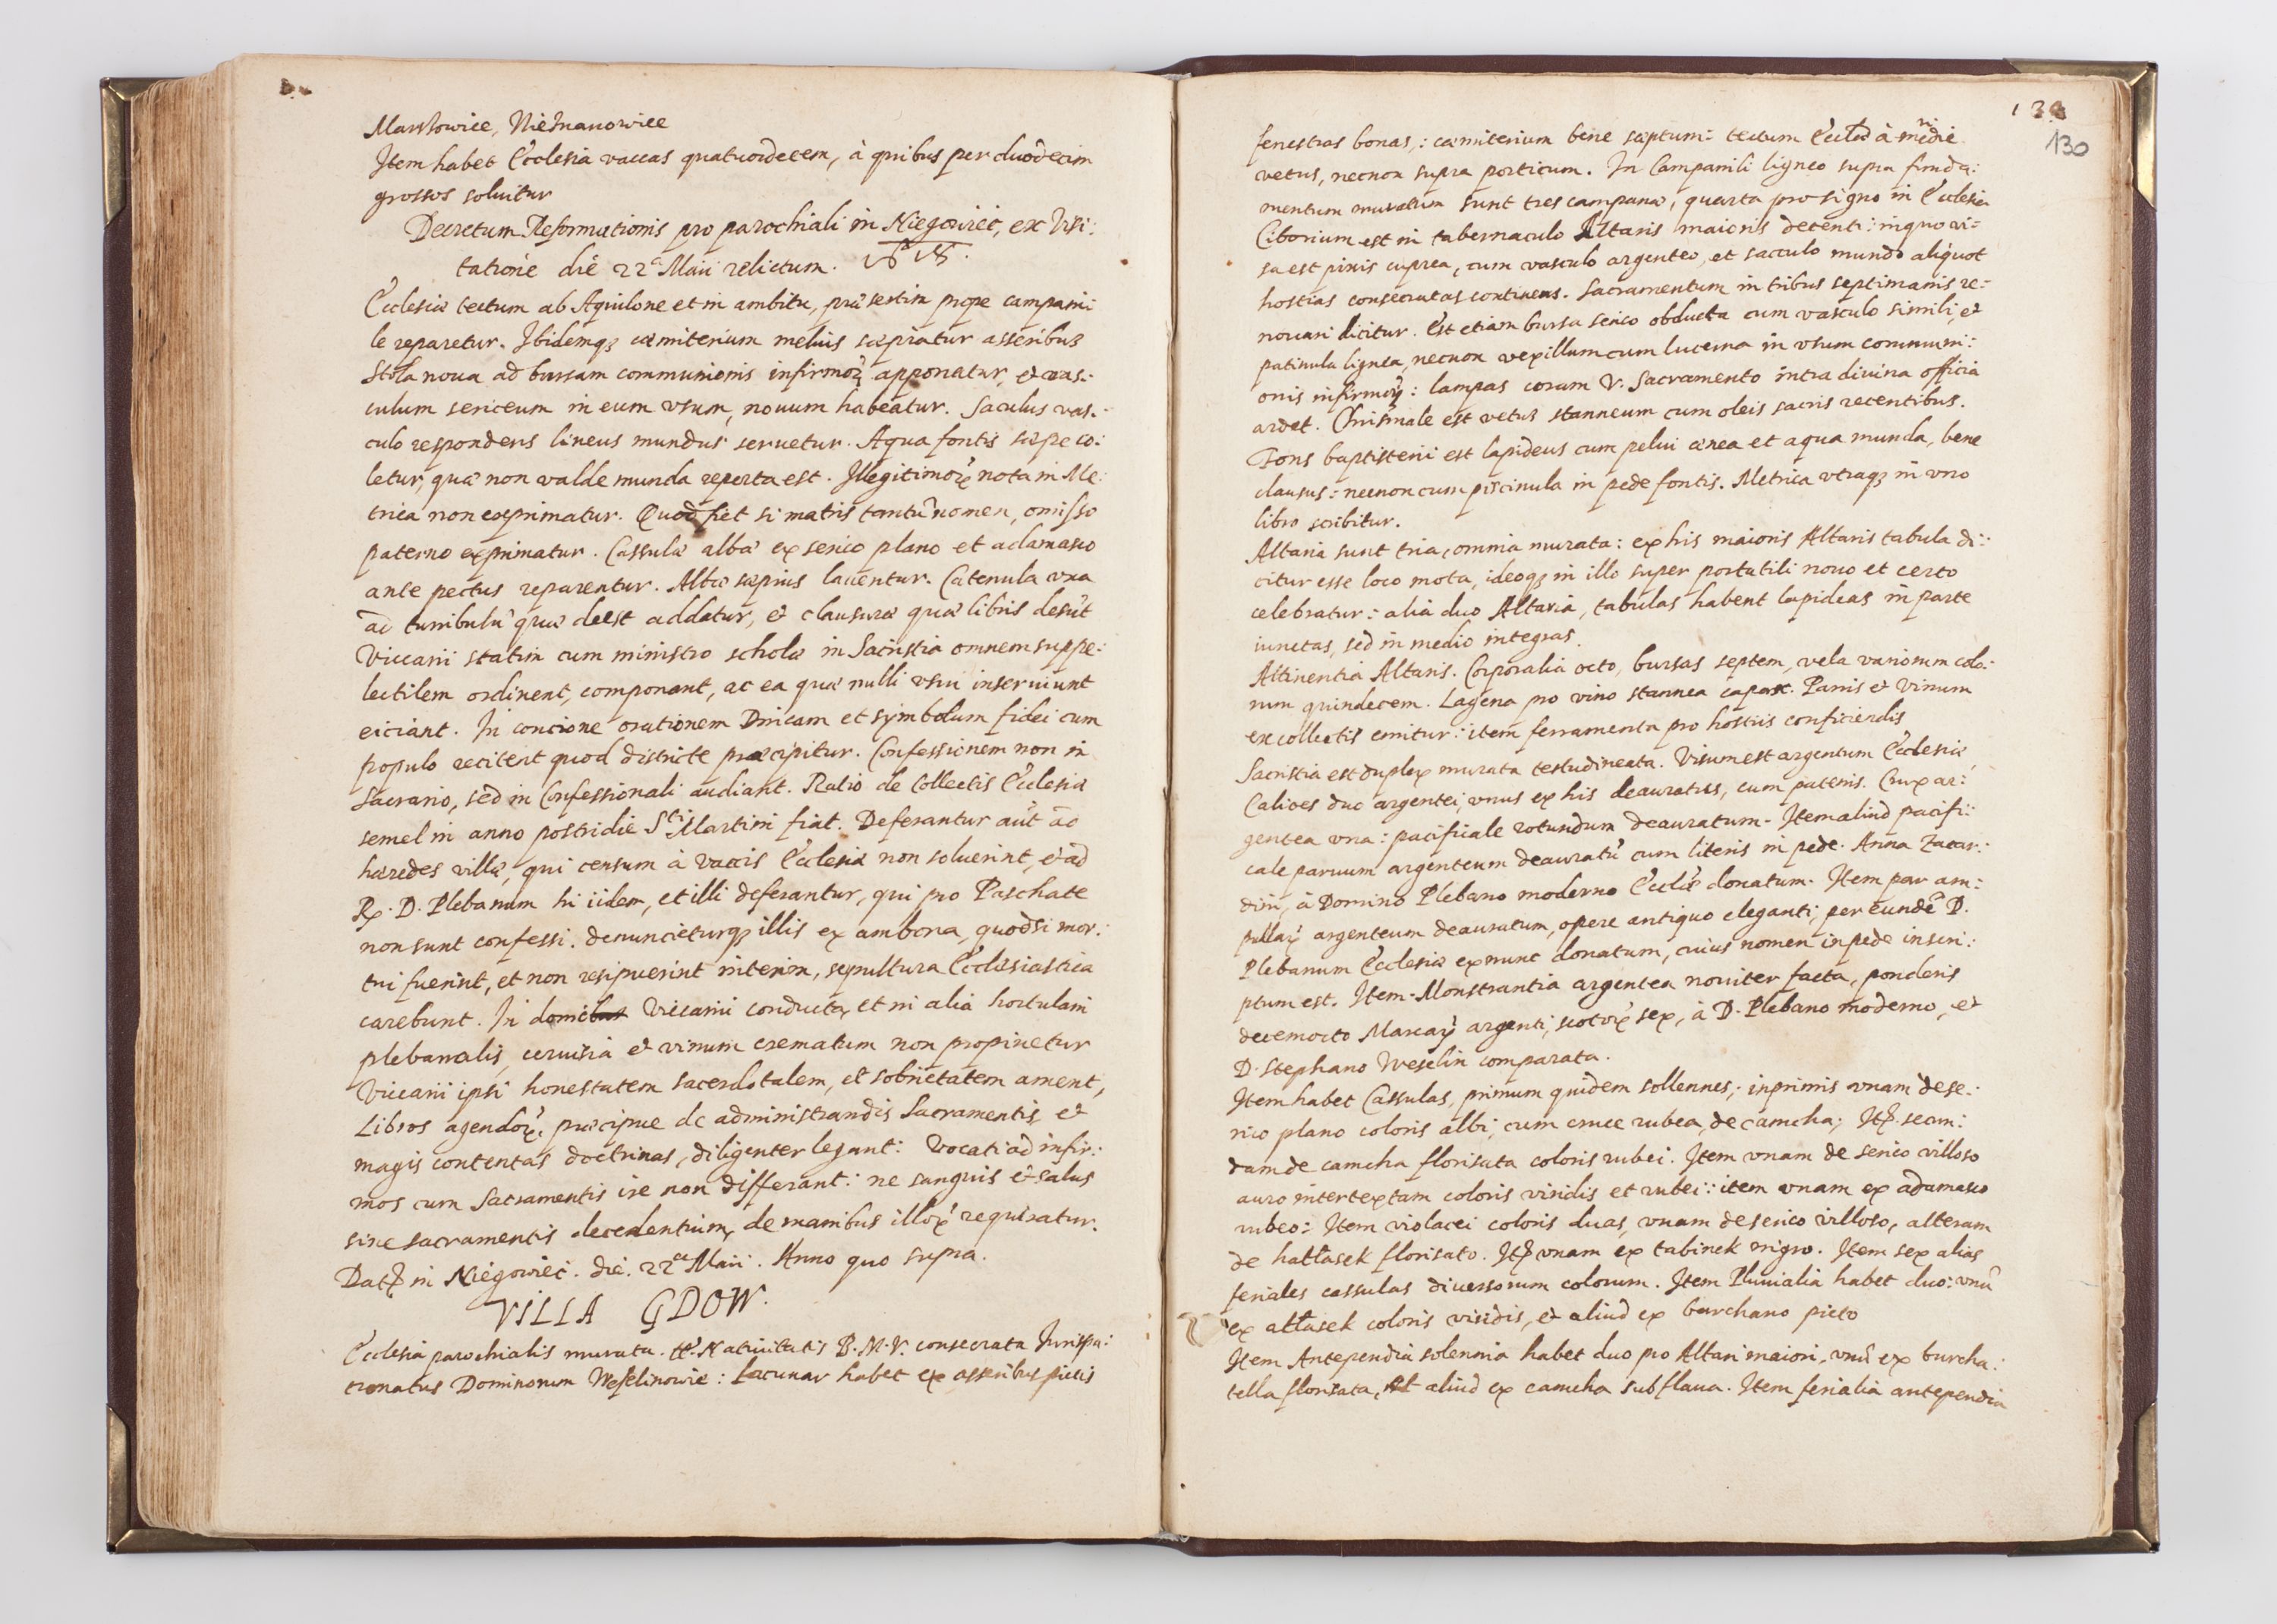 Marszowice, Nieznanowice
Item habet Ecclesia vaccas quatuordecem, à quibus per duodecim
grossos soluitur
Decretum Reformationis pro parochiali in Niegowiec, ex Visi:
tatione die 22ª Maii relictum.
Ecclesiæ tectum ab Aquilone et in ambitu, præsertim prope campani:
le reparetur. Ibidemqꝫ cæmiterium melius sæpiatur asseribus
Stola noua ad bursam communionis infirmoꝝ apponatur, et vas:
culum sericeum in eum vsum, nouum habeatur. Saculus vas:
culo respondens lineus mundus seruetur. Aqua fontis sæpe co:
letur, quæ non valde munda reperta est. Illegitimoꝝ nota in Me:
trica non exprimatur. Quod fiet si matris tantũ nomen, omisso
paterno exprimatur. Cassulæ albæ ex serico plano et adamasco
ante pectus reparentur. Albæ sæpius lauentur. Catenula vna
ad turribulũ quæ deest addatur, et clausuræ quæ libris desũt
Viccarii statim cum ministro scholæ in Sacristia omnem suppe:
lectilem ordinent, componant, ac ea quæ nulli vsui inseruiunt
eiciant. In concione orationem Dnicam et symbolum fidei cum
populo recitent quod districte præcipitur. Confessionem non in
Sacrario, sed in Confessionali audiant. Ratio de Collectis Ecclesiæ
semel in anno postridie Sti Martini fiat. Deferantur aũt ad
hæredes villæ, qui censum à vaccis Ecclesiæ non soluerint, et ad
R. D. Plebanum hi iidem, et illi deferantur, qui pro Paschate
non sunt confessi. denuncieturqꝫ illis ex ambona, quodsi mor:
tui fuerint, et non resipuerint interim, sepultura Ecclesiastica
carebunt. In domibus Viccarii conducta, et in alia hortulani
plebanalis, ceruisia et vinum crematum non propinetur
Viccarii ipsi honestatem sacerdotalem, et sobrietatem ament,
Libros agendoꝝ præcipue de administrandis Sacramentis et
magis contentas doctrinas, diligenter legant: Vocati ad infir:
mos cum Sacramentis ire non differant: ne sanguis et salus
sine sacramentis decedentium, de manibus illoꝝ requiratur.
Dat in Niegowiec. die. 22ª Maii. Anno quo supra.
VILLA GDOW.
Ecclesia parochialis murata. tt. Natiuitatis B. M. V. consecrata Iurispa:
tronatus Dominorum Weselinowie: Lacunar habet ex asseribus pictis
130
fenestras bonas,: cæmiterium bene sæptum: tectum Ecclæ à meridie
vetus, necnon supra porticum. In Campanili ligneo supra funda:
mentum muratum sunt tres campanæ, quarta pro signo in Ecclesia
Ciborium est in tabernaculo Altaris maioris decenti: in quo vi:
sa est pixis cuprea, cum vasculo argenteo, et sacculo mundo aliquot
hostias consecratas continens. Sacramentum in tribus septimanis re:
nouari dicitur. Est etiam bursa serico obducta cum vasculo simili, et
patinula lignea, necnon vexillum cum lucerna in vsum communi:
onis infirmoꝝ: lampas coram V. Sacramento intra diuina officia
ardet. Chrismale est vetus stanneum cum oleis sacris recentibus.
Fons baptisterii est lapideus cum pelui ænea et aqua munda, bene
clausus: necnon cum piscinula in pede fontis. Metrica vtraqꝫ in vno
libro scribitur.
Altaria sunt tria, omnia murata: ex his maioris Altaris tabula di:
citur esse loco mota, ideoqꝫ in illo super portatili nouo et certo
celebratur: alia duo Altaria, tabulas habent lapideas in parte
iunctas, sed in medio integras.
Attinentia Altaris. Corporalia octo, bursas septem, vela variorum colo:
rum quindecem. Lagena pro vino stannea capax. Panis et vinum
ex collectis emitur: item ferramenta pro hostiis conficiendis
Sacristia est duplex murata testudineata. Visum est argentum Ecclesiæ,
Calices duo argentei, vnus ex his deauratus, cum patenis. Crux ar:
gentea vna: pacificale rotundum deauratum. Item aliud pacifi:
cale paruum argenteum deauratũ cum literis in pede. Anna Zacar:
din, à Domino Plebano moderno Ecclæ donatum. Item par am:
pullaꝝ argenteum deauratum, opere antiquo eleganti, per eundẽ D.
Plebanum Ecclesiæ ex nunc donatum, cuius nomen in pede inscri:
ptum est. Item Monstrantia argentea nouiter facta, ponderis
decemocto Marcaꝝ argenti, scotoꝝ sex, à D. Plebano moderno, et
D. Stephano Weselin comparata.
Item habet Cassulas, primum quidem sollennes; inprimis vnam de se:
rico plano coloris albi, cum cruce rubea, de camcha; It. secun:
dam de camcha florisata coloris rubei. Item vnam de serico villoso
auro intertextam coloris viridis et rubei: item vnam ex adamasco
rubeo: Item violacei coloris duas, vnam de serico villoso, alteram
de hatłasek florisato. It vnam ex tabinek nigro. Item sex alias
feriales cassulas diuersorum colorum. Item Pluuialia habet duo: vnũ
ex atłasek coloris viridis, et aliud ex barchano picto
Item Antependia solennia habet duo pro Altari maiori, vnũ ex burcha:
tella florisata, et aliud ex camcha subflaua. Item ferialia antependia